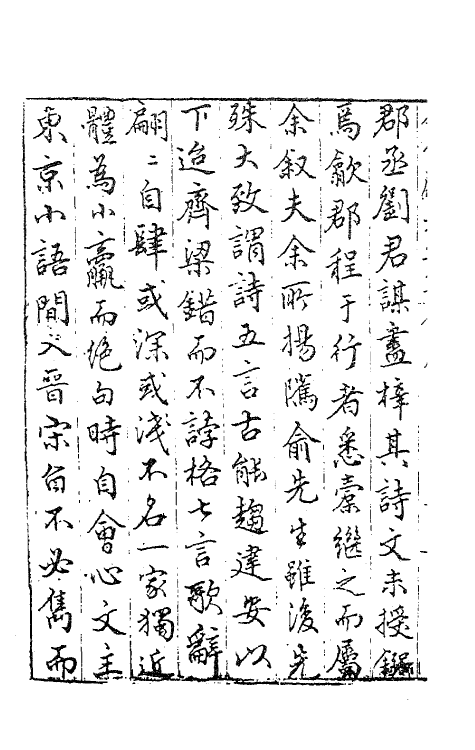 郡丞劉君謀盡梓其詩文未授鍥
焉歙郡程于行者悉橐繼之而屬
余叙夫余所揚隲俞先生雖復先
殊大致謂詩五言古能趨建安以
下迨齊梁錯而不誖格七言歌辭
翩〻自肆或深或淺不名一家獨近
體為小羸而絶句時自會心文主
東京小語間入晉宋旨不必雋而